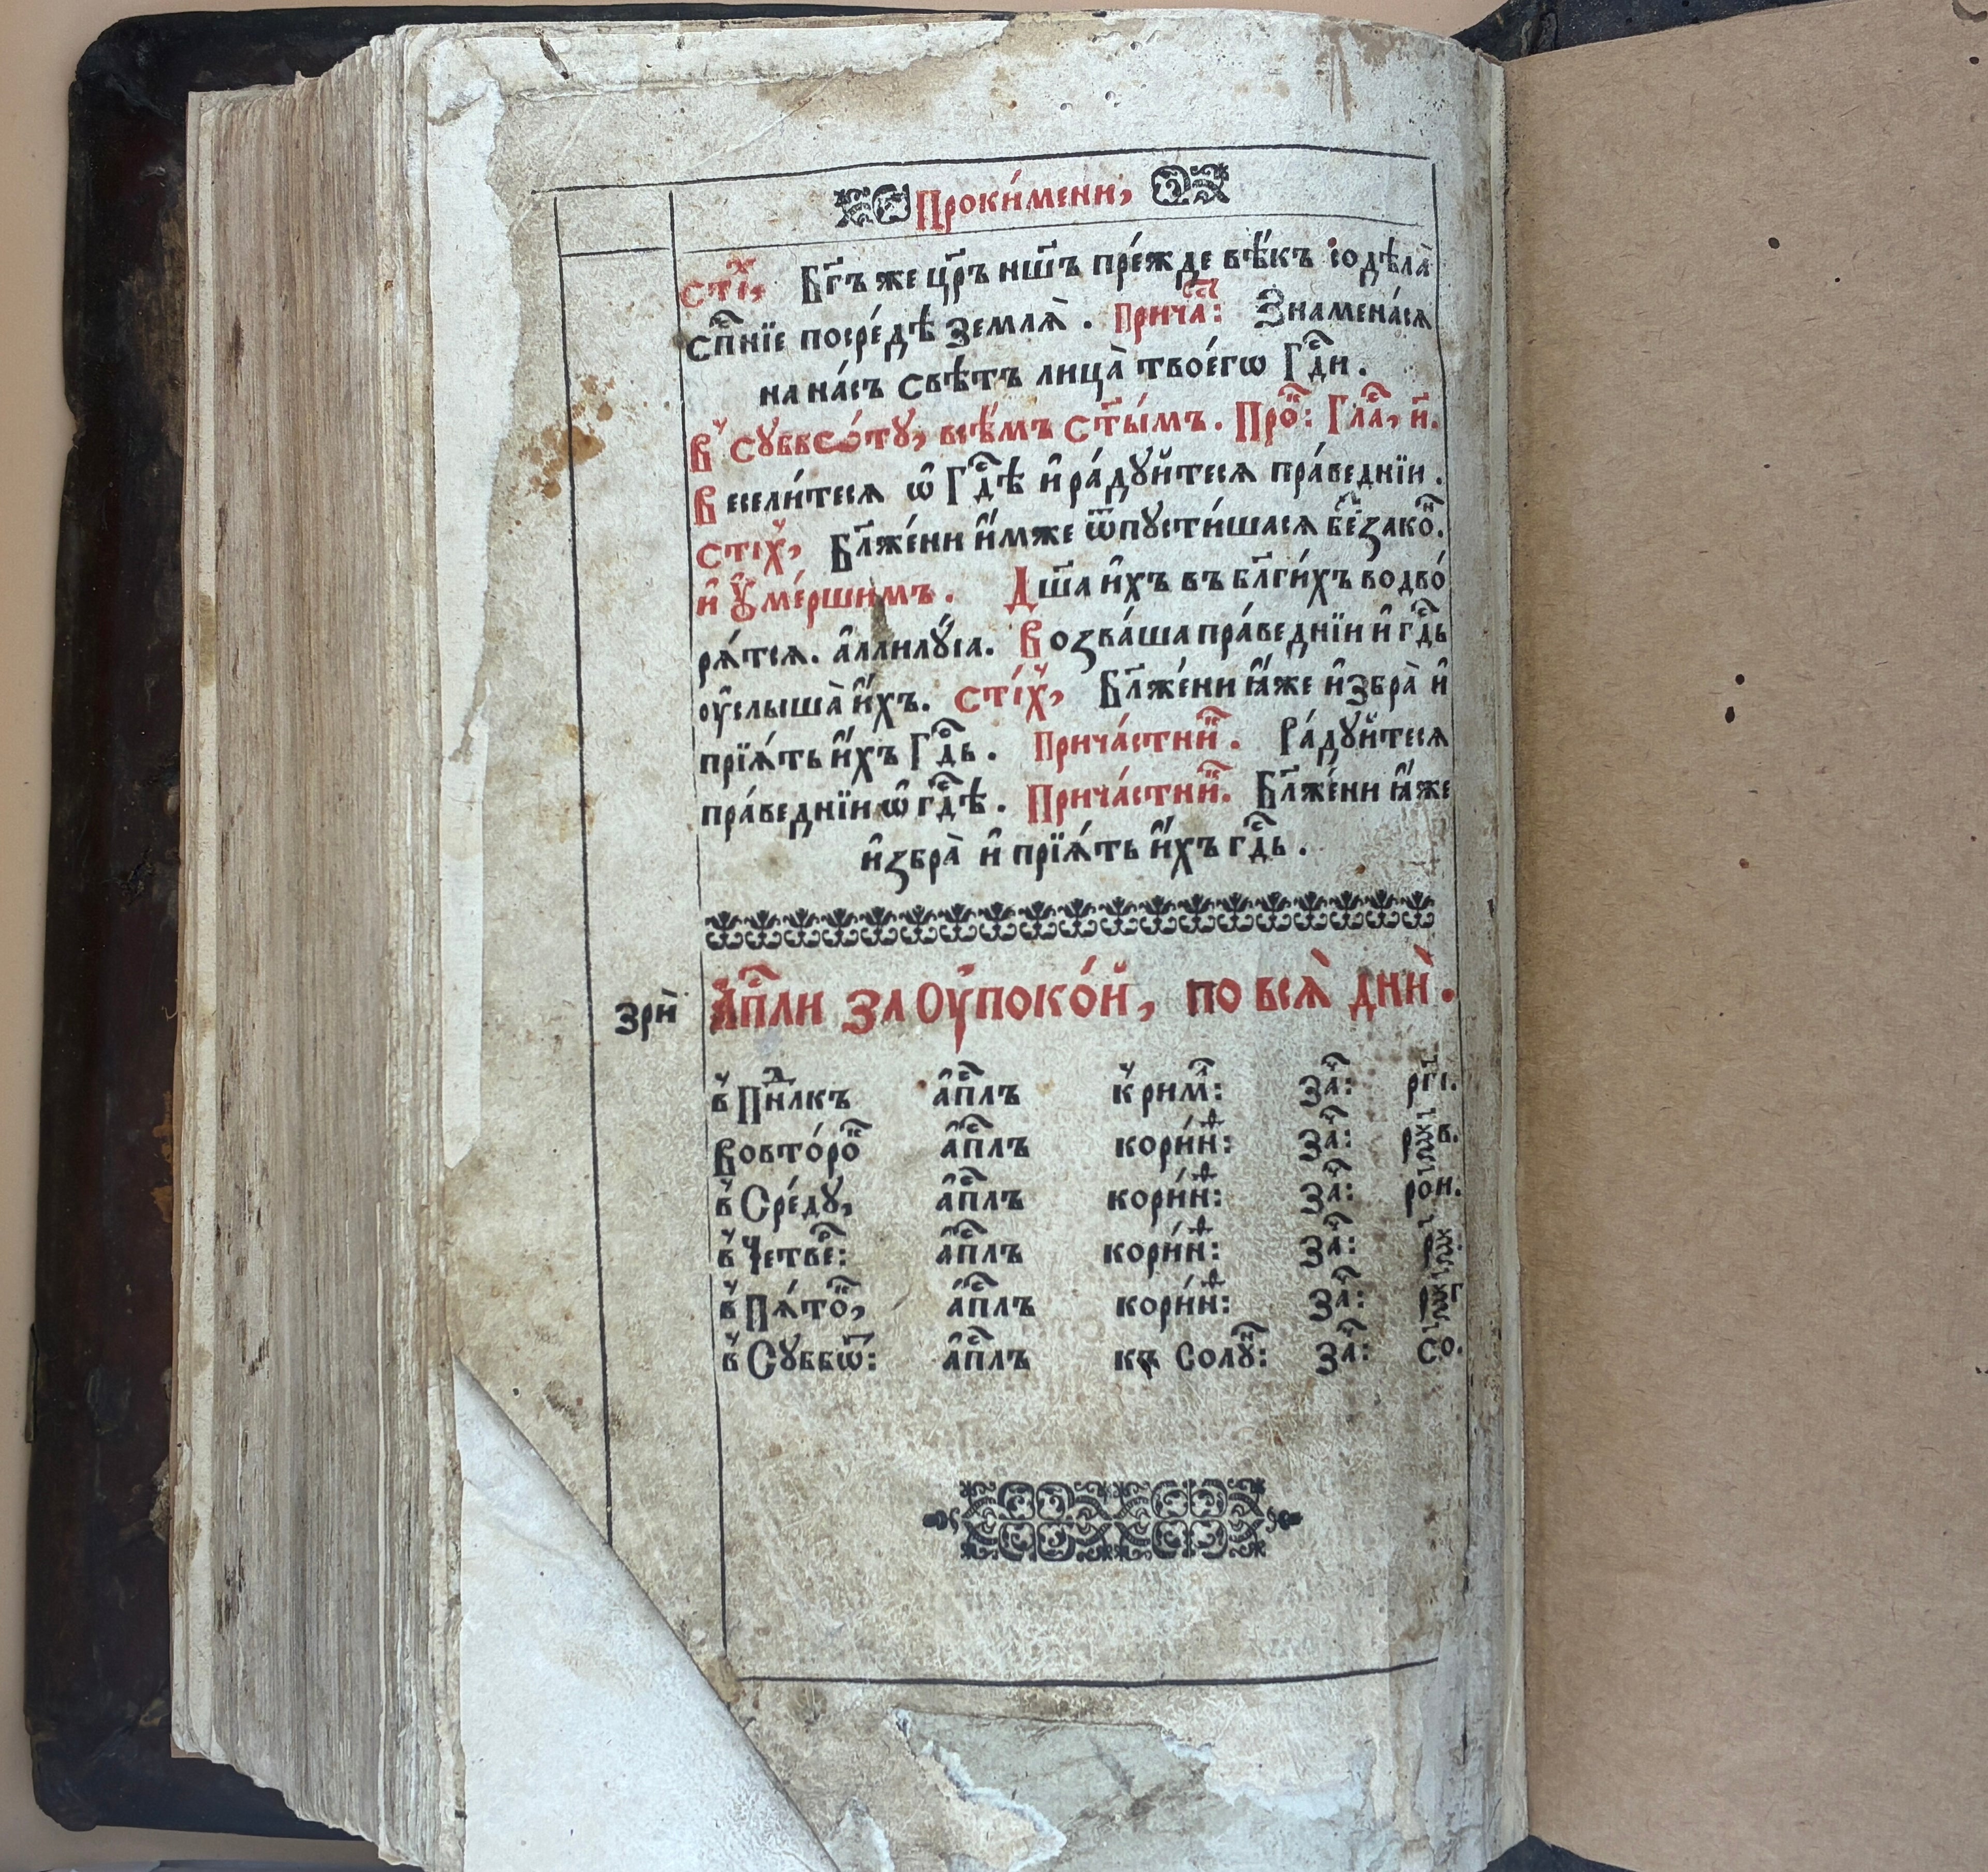 Проки́мени,
Сті́х, Бг҃ъ же цр҃ь нш҃ъ пре́жде вѣ̈къ содѣ́ла
сп҃нїе посре́дѣ землѧ̀. Прича́с: Знаменасѧ
на на́съ свѣ́тъ лица̀ твоегѡ̀ Гдⷭ҇и.
В̾ сꙋббѡ́тꙋ, всѣ̈мъ ст҃ы́мъ. Проⷦ҇: Глаⷭ҇, и҃.
Весели́тесѧ ѡ҆ Гдⷭ҇ѣ и҆ ра́дꙋйтесѧ пра́веднїи.
Стіх̾, Бл҃же́ни и҆̀мже ѿпꙋсти́шасѧ беззакоⷩ҇.
и҆ ᲂу҆ме́ршимъ. Дш҃а и҆́хъ въ бл҃ги́хъ водво́
рѧ́тсѧ. а҆ллилꙋ́їа. Возва́ша пра́веднїи и҆ гдⷭ҇ь
ᲂу҆слы́ша и҆́хъ. Сті́х̾, Бл҃же́ни ꙗ҆̀же и҆збра̀ и҆
прїѧ́тъ и҆́хъ Гдⷭ҇ь. Прича́стниⷦ҇. Ра́дꙋйтесѧ
пра́веднїи ѡ҆ гдⷭ҇ѣ. Прича́стниⷦ҇. Бл҃же́ни ꙗ҆̀же
и҆збра̀ и҆ прїѧ́тъ и҆́хъ гдⷭ҇ь.
зрѝ А҆пⷭ҇ли за ᲂу҆поко́й, по всѧ̀ днѝ.
в̾ Пнⷣлкъ а҆пⷭ҇лъ к̾ римлⷧ҇: заⷱ҇: рг҃і.
Во вто́роⷦ҇ а҆пⷭ҇лъ кори́нⷴ҇: заⷱ҇:
в̾ Сре́дꙋ, а҆пⷭ҇лъ кори́нⷴ҇: заⷱ҇: рон.
в̾ Четвеⷬ҇: а҆пⷭ҇лъ кори́нⷴ҇: заⷱ҇:
в̾ Пѧ́тоⷦ҇, а҆пⷭ҇лъ кори́нⷴ҇: заⷱ҇:
в̾ Сꙋббѡⷮ҇: а҆пⷭ҇лъ къ Солꙋⷩ҇: заⷱ҇: со.